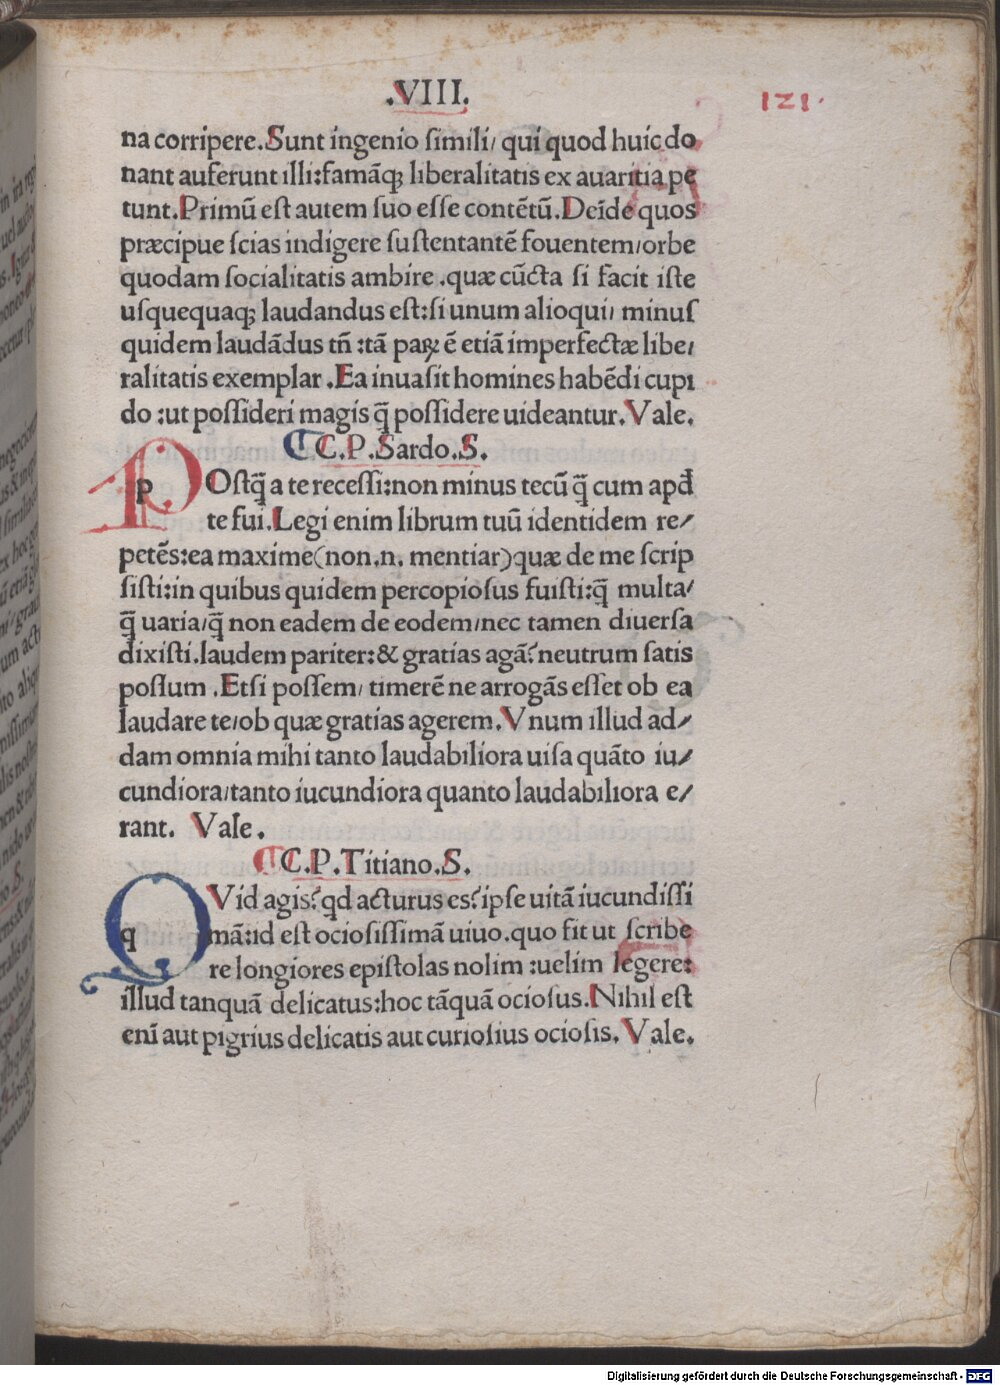 .VIII.
121.
na corripere.Sunt ingenio ſimili/ qui quod huic do
nant auferunt illi:famãqꝫ liberalitatis ex auaritia pe
tunt.Primũ eſt autem ſuo eſſe contẽtũ.Deĩde quos
præcipue ſcias indigere ſuſtentantẽ fouentem/orbe
quodam ſocialitatis ambire .quæ cũcta ſi facit iſte
uſquequaqꝫ laudandus eſt:ſi unum alioqui/ minuſ
quidem laudãdus tñ :tã paꝝ ẽ etiã imperfectæ libe/
ralitatis exemplar .Ea inuaſit homines habẽdi cupi
do :ut poſſideri magis q̃ poſſidere uideantur.Vale.
C.P.Sardo.S.
p POſtq̃ a te receſſi:non minus tecũ q̃ cum apđ
te fui.Legi enim librum tuũ identidem re/
petẽs:ea maxime(non.n. mentiar)quæ de me ſcrip
ſiſti:in quibus quidem percopioſus fuiſti:q̃ multa/
q̃ uaria/q̃ non eadem de eodem/nec tamen diuerſa
dixiſti.laudem pariter:& gratias agã?neutrum ſatis
poſſum .Etſi poſſem/ timerẽ ne arrogãs eſſet ob ea
laudare te/ob quæ gratias agerem.Vnum illud ad/
dam omnia mihi tanto laudabiliora uiſa quãto iu/
cundiora/tanto iucundiora quanto laudabiliora e/
rant. Vale.
C.P.Titiano.S.
q QVid agis?qd acturus es?ipſe uitã iucundiſſi
mã:id eſt ocioſiſſimã uiuo.quo fit ut ſcribe
re longiores epiſtolas nolim :uelim legere:
illud tanquã delicatus:hoc tãquã ocioſus.Nihil eſt
enĩ aut pigrius delicatis aut curioſius ocioſis. Vale.
Digitalisierung gefördert durch die Deutsche Forschungsgemeinschaft - DFG